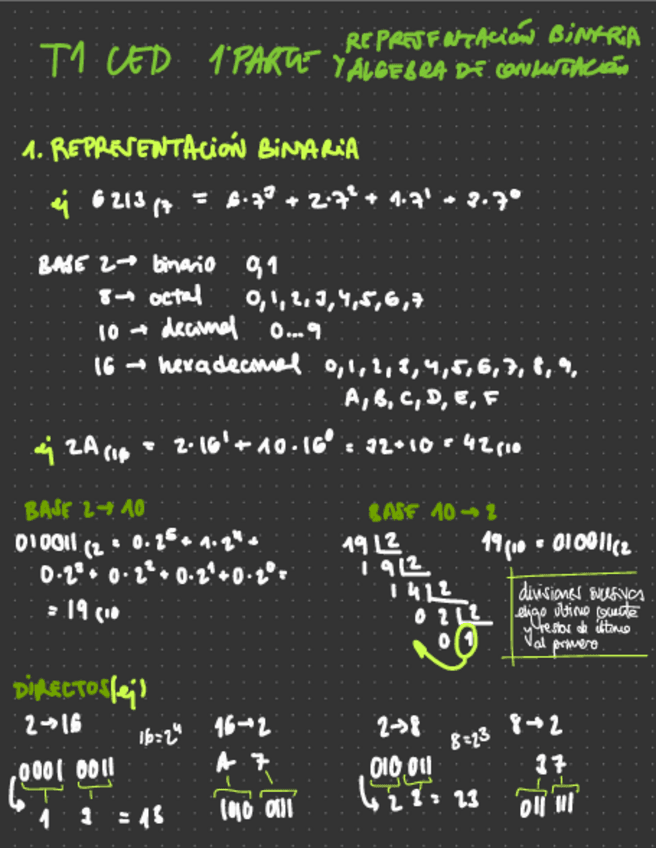 T1 CED 1ª PARTE REPRESENTACIÓN BINARIA
Y ÁLGEBRA DE CONMUTACIÓN
1. REPRESENTACIÓN BINARIA
ej 6213 (7 = 6·7³ + 2·7² + 1·7¹ + 3·7⁰
BASE 2→ binario 0,1
8→ octal 0,1,2,3,4,5,6,7
10 → decimal 0...9
16 → hexadecimal 0,1,2,3,4,5,6,7,8,9,
A,B,C,D,E,F
ej 2A(16 = 2·16¹ + 10·16⁰ = 32+10 = 42(10
BASE 2→10
010011(2 = 0·2⁵ + 1·2⁴ +
0·2³ + 0·2² + 0·2¹ + 0·2⁰ =
= 19(10
BASE 10→2
19 |2 19(10 = 010011(2
1 9 |2
1 4 |2
0 2 |2
0 1
divisiones sucesivas
eligo último cociente
y restos de último
al primero
DIRECTOS (ej)
2→16 16=2⁴
0001 0011
1 3 = 13
16→2
A 7
1010 0111
2→8 8=2³
010 011
2 3 = 23
8→2
37
011 111